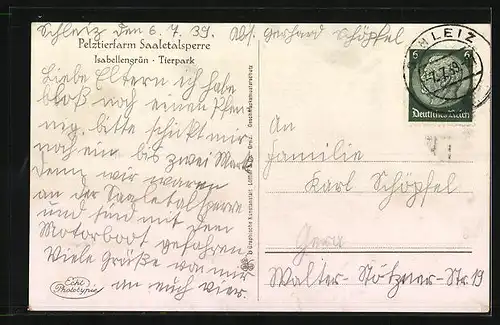 Schleiz den 6.7.39. Abs. Gerhard Schöpfel
Pelztierfarm Saaletalsperre
Isabellengrün · Tierpark
Liebe Eltern ich habe
bloß noch einen Pfen-
nig, bitte schickt mir
noch ein bis zwei Mark
denn wir waren
an der Saaletalsperre
und sind mit dem
Motorboot gefahren.
Viele Grüße von mir
an euch vier.
Echt
Photo
Graphische Kunstanstalt
SCHLEIZ
7.7.39
6 6
Deutsches Reich
An
Familie
Karl Schöpfel
Gera
Walter-Stötzner-Str. 19